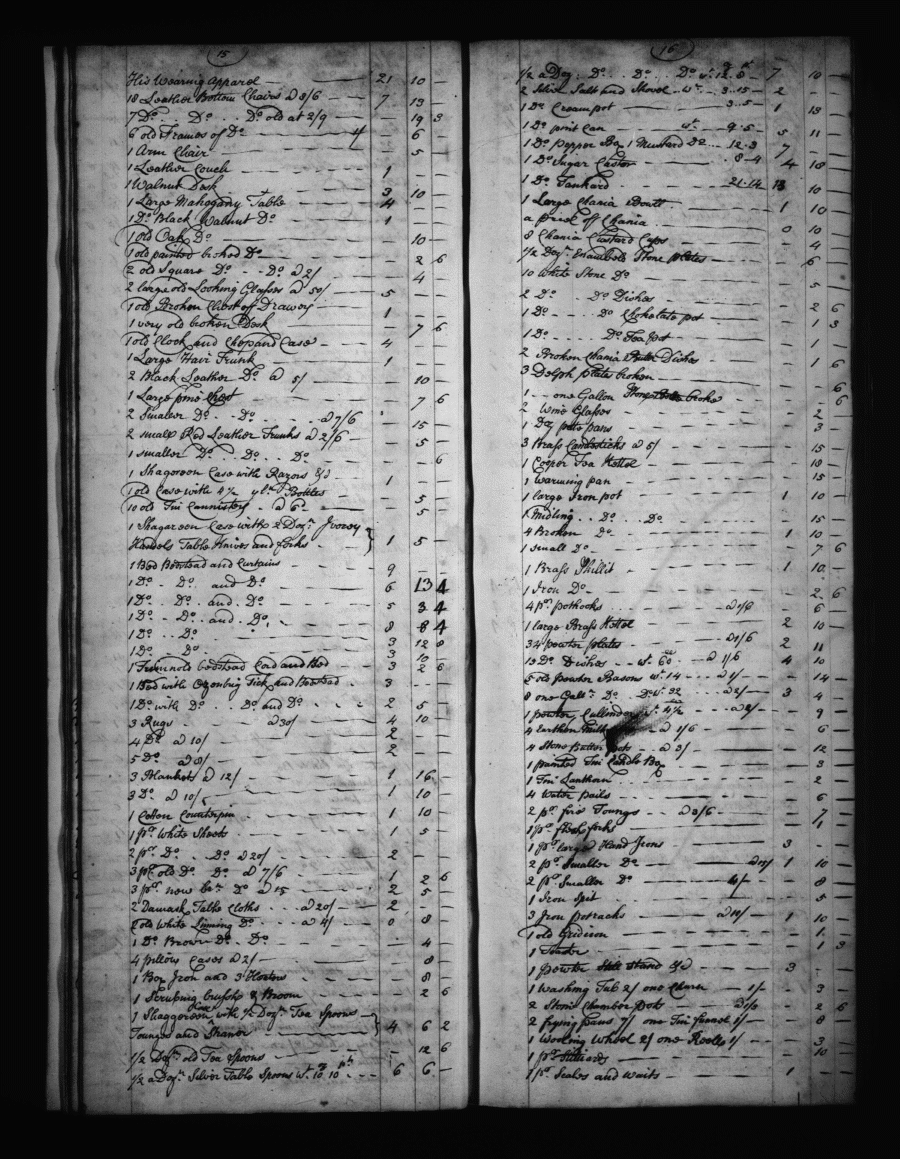 15
His Wearing Apparel 21 10 -
18 Leather Bottom Chairs @ 8/6 7 13 -
7 Do . . Do . . Do old at 2/9 - 19 3
6 old Frames of Do - 6 -
1 Arm Chair - 5 -
1 Leather Couch 1 - -
1 Walnut Desk 3 10 -
1 Large Mahogany Table 4 - -
1 Do Black Walnut Do 1 - -
1 old Oak Do - 10 -
1 old painted broked Do - 2 6
2 old Square Do - - Do @ 2/ - 4 -
2 large old Looking Glasses @ 50/ 5 - -
1 old Broken Chest of Drawers 1 - -
1 very old broken Desk - 7 6
1 old Clock and Chopand Case 4 - -
1 Large Hair Trunk 1 - -
2 Black Leather Do @ 5/ - 10 -
1 Large pine Chest - 7 6
2 Smaler Do - - Do @ 7/6 - 15 -
2 small Red Leather Trunks @ 2/6 - 5 -
1 smaller Do . . Do . . Do - - 6
1 Shagareen Case with Razors &c 1 - -
1 old Case with 4 1/2 Bottles - 5 -
10 old Tin Cannisters - @ 6d - 5 -
1 Shagareen Case with 2 Dozn Jvorey
Handels Table Knives and forks 1 5 -
1 Bed Bedstead and Curtains 9 - -
1 Do - Do and Do 6 13 4
1 Do - Do and Do 5 3 4
1 Do - Do and Do 8 8 4
1 Do . . Do 3 12 8
1 Do - Do 3 10 -
1 old bedstead Cord and Bed 3 2 6
1 Bed with Ozenbrig Tick and Bedstead 3 - -
1 Do with Do . . Do and Do 2 5 -
3 Rugs @ 30/ 4 10 -
4 Do @ 10/ 2 - -
5 Do @ 8/ 2 - -
3 Blankets @ 12/ 1 16 -
3 Do @ 10/ 1 10 -
1 Cotton Counterpin 1 10 -
1 pr White Sheets 1 5 -
2 pr Do . . Do @ 20/ 2 - -
3 pr old Do Do @ 7/6 1 2 6
3 pr new Do @ 15 2 5 -
2 Damask Table Cloths - - @ 20/ 2 - -
2 old White Linning Do - - @ 4/ 0 8 -
1 Do Brown Do - Do - 4 -
4 pillow Cases @ 2/ - 8 -
1 Box Iron and 3 Heaters - 8 -
1 Scrubing brush & Broom - 2 6
1 Shaggereen Case with 1/2 Dozn Tea Spoons
Tounges and Strainer 4 6 2
1/2 Dozn old Tea Spoons - 12 6
1/2 a Dozn Silver Table Spoons wt 10 10 6 6 -
16
1/2 a Doz. Do . . Do . . Do wt 12.8 7 10 -
2 Silver Salts and Shovel - wt - 3.15 2 - -
1 Do Creampot 3.5 1 13 -
1 Do pint Can wt 9.5 5 11 -
1 Do Pepper Box 1 Mustard Do 12.3 7 - -
1 Do Sugar Castor 8.4 4 18 -
1 Do Tankard 21.14 13 10 -
1 Large Chania Bowll 1 10 -
a price of Chania 0 10 -
8 Chania Custard Cups - 4 -
1/2 Dozn Enambold Stone plates - 6 -
10 White Stone Do - 5 -
2 Do - Do Dishes - 2 6
1 Do - - Do Chokolate pot - 1 3
1 Do . . . Do Tea pot - 1 -
2 Broken Chania Dishes - 1 6
3 Delph plates broken - - 6
1 - one Gallon broke - - 6
2 Wine Glasses - 2 -
1 Doz pans - 3 -
3 Brass Candlesticks @ 5/ - 15 -
1 Coper Tea Kettel - 18 -
1 Warming pan - 15 -
1 large Iron pot 1 10 -
1 Midling . . Do . . Do - 15 -
4 Broken Do 1 10 -
1 small Do - 7 6
1 Brass Skillit 1 10 -
1 Iron Do - 2 6
4 pr pothooks @ 1/6 - 6 -
1 large Brass Kettel 2 10 -
34 pewter plates @ 1/6 2 11 -
13 Do Dishes - - wt 60 - @ 1/6 4 10 -
5 old pewter Basons wt 14 - @ 1/ - 14 -
8 one Galln Do - Do wt 32 @ 2/ 3 4 -
1 pewter Cullender wt 4 1/2 @ 2/ - 9 -
4 Earthen @ 1/6 - 6 -
4 Stone Butter pots - @ 3/ - 12 -
1 painted Tin Candle Box - 3 -
1 Tin Lanthorn - 2 -
4 Water pails - 6 -
2 pr fire Toungs @ 3/6 - 7 -
1 pr flesh forks - 1 -
1 pr large Hand Irons 3 - -
2 pr Smaller Do @ 15/ 1 10 -
2 pr Smaller Do 4/ - 8 -
1 Iron Spit - 5 -
3 Iron potracks @ 10/ 1 10 -
1 old Gridiron - 1 -
1 Toaster - 1 3
1 pewter Still Stand &c 3 - -
1 Washing Tub 2/ one Churn 1/ - 3 -
2 Stone Chamber pots @ 1/3 - 2 6
2 frying pans 7/ one Tin funnel 1/ - 8 -
1 Wooling Wheel 2/ one Reele 1/ - 3 -
1 pr Stilliards - 10 -
1 pr Scales and waits 1 - -